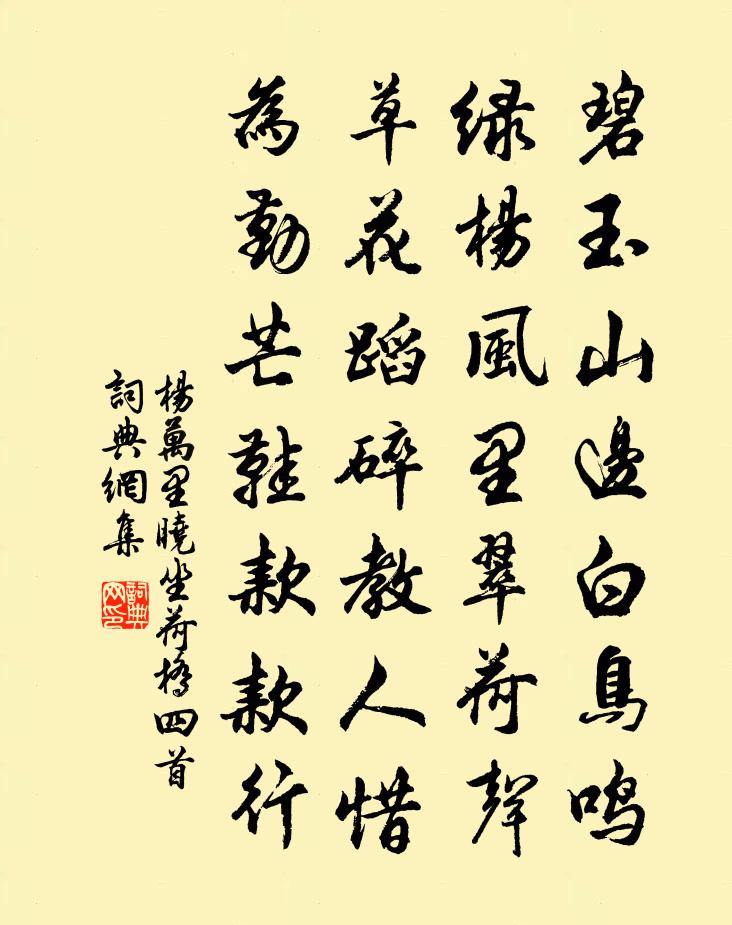 碧玉山邊白鳥鳴
绿楊風里翠荷聲
草花蹈碎教人惜
為勤芒鞋款款行
楊萬里曉坐荷橋四首
詞典網集
詞典
网印